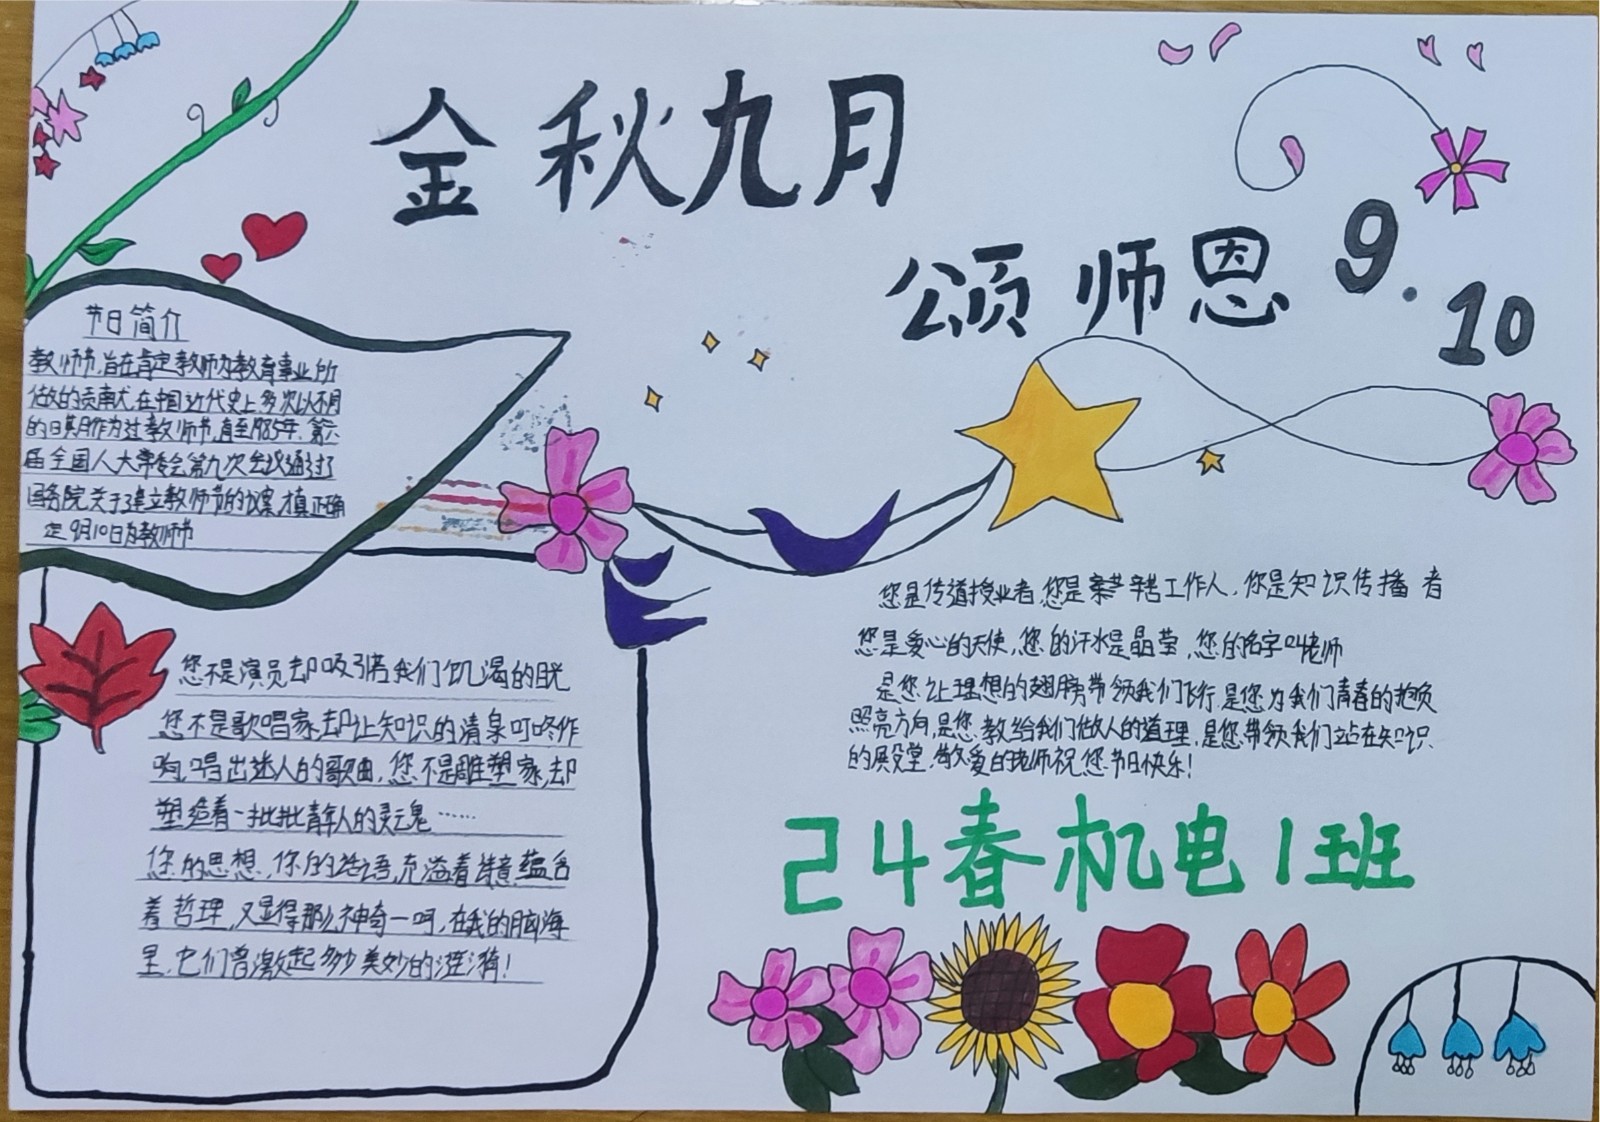 金秋九月
颂师恩
9.10
节日简介
教师节,旨在肯定教师为教育事业所
做的贡献尤.在中国近代史上多次以不同
的日期作为过教师节,直至1985年、第六
届全国人大常委会第九次会议通过了
国务院关于建立教师节的议案,才真正确
定9月10日为教师节
您不是演员却吸引着我们饥渴的眼
您不是歌唱家,却让知识的清泉叮咚作
响,唱出迷人的歌曲,您不是雕塑家,却
塑造着一批批青年人的灵魂……
你的思想,你的话语,充溢着诗意,蕴含
着哲理,又显得那么神奇一呵,在我的脑海
里,它们曾激起多少美妙的涟漪!
您是传道授业者,您是辛苦工作人,你是知识传播者
您是爱心的天使,您的汗水是晶莹,您的名字叫老师
是您让理想的翅膀带领我们飞行,是您为我们青春的抱负
照亮方向,是您教给我们做人的道理,是您带领我们站在知识
的殿堂,敬爱的老师祝您节日快乐!
24春机电1班